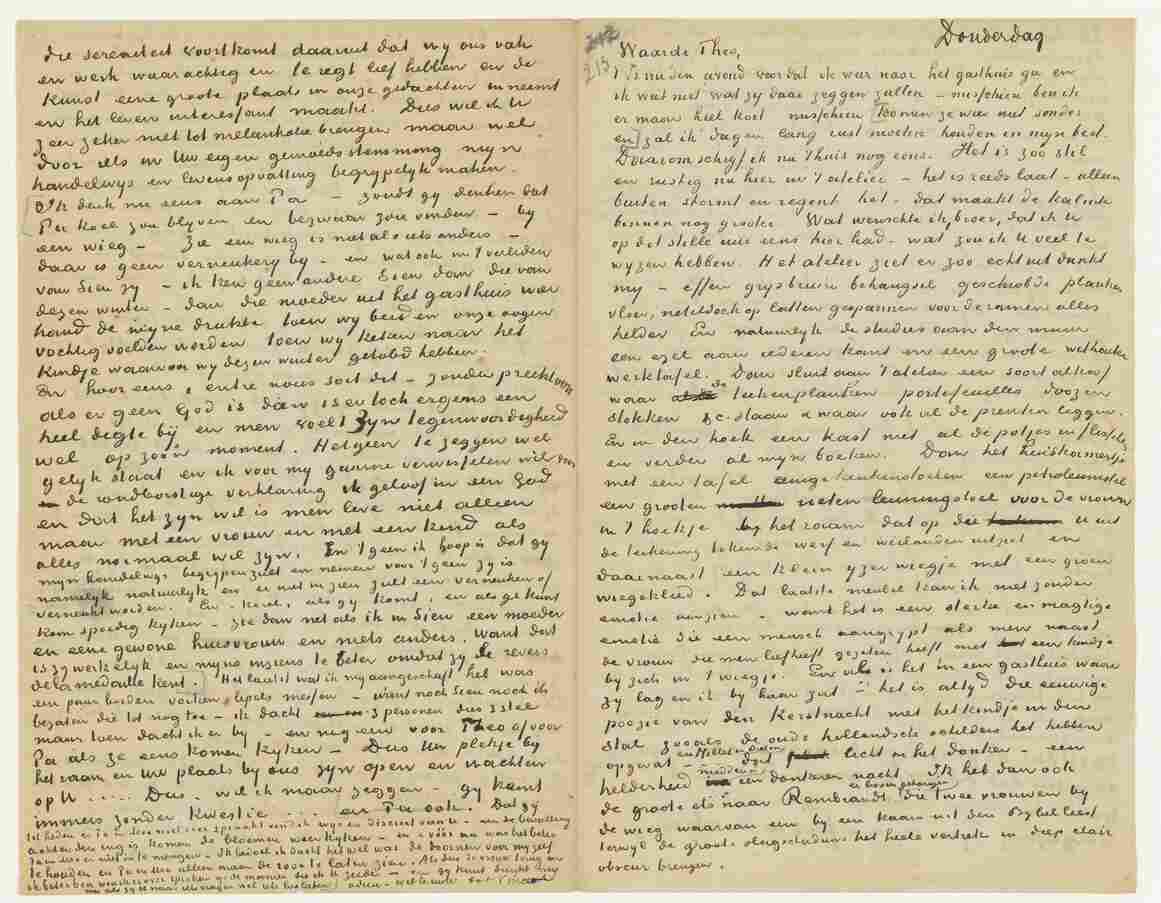 die sereniteit voortkomt daaruit dat wy ons vak
en werk waarachtig en te regt lief hebben en de
kunst eene groote plaats in onze gedachten inneemt
en het leven interessant maakt. Dus wil ik U
zeer zeker niet tot melancholie brengen maar wel
door iets in Uw eigen gemoedsstemming myn
handelwys en levensopvatting begrypelyk maken.
Ik denk nu eens aan Pa – zoudt gy denken dat
Pa koel zou blyven en bezwaar zou vinden – by
een wieg – Zie een wieg is niet als iets anders –
daar is geen verneukery by – en wat ook in 't verleden
van Sien zy – ik ken geen andere Sien dan die van
dezen winter – dan die moeder uit het gasthuis wier
hand de myne drukte toen wy beiden onze oogen
vochtig voelden worden toen wy keken naar het
kindje waarvoor wy dezen winter getobd hebben.
En hoor eens, entre nous soit dit – zonder preektoon
als er geen God is dan is er toch ergens een
heel digte bij en men voelt Zyn tegenwoordigheid
wel op zoo'n moment. Hetgeen te zeggen wel
gelyk staat en ik voor my gaarne verwisselen wil voor
de rondborstige verklaring ik geloof in een God
en dat het zyn wil is men leve niet alleen
maar met een vrouw en met een kind als
alles normaal wil zyn. En 't geen ik hoop is dat gy
myn handelwys begrypen zult en nemen voor 't geen zy is
namelyk natuurlyk en er niet in zien zult een verneuken of
verneukt worden. En – kerel, als gy komt, en als ge kunt
kom spoedig kyken – zie dan net als ik in Sien een moeder
en eene gewone huisvrouw en niets anders. Want dat
is zy werkelyk en myns inziens te beter omdat zy le revers
de la medaille kent. Het laatst wat ik my aangeschaft heb was
een paar borden vorken, lepels messen – want noch Sien noch ik
bezaten die tot nog toe – ik dacht 3 personen dus 3 stel
maar toen dacht ik er by – en nog een voor Theo of voor
Pa als ze eens komen kyken – Dus Uw plekje by
het raam en uw plaats by ons zyn open en wachten
op U .... Dus – wil ik maar zeggen – gy komt
immers zonder kwestie ... en Pa ook. Dat gy
Donderdag
Waarde Theo,
't Is nu den avond voordat ik weer naar het gasthuis ga en
ik weet niet wat zy daar zeggen zullen – misschien ben ik
er maar heel kort misschien [kunnen ze weer met sonder
en] zal ik dagen lang rust moeten houden en myn bed.
Daarom schryf ik nu thuis nog eens. Het is zoo stil
en rustig nu hier in 't atelier – het is reeds laat – alleen
buiten stormt en regent het – dat maakt de kalmte
binnen nog grooter. Wat wenschte ik, broer, dat ik U
op dit stille uur eens hier had – wat zou ik U veel te
wyzen hebben. Het atelier ziet er zoo echt uit dunkt
my – effen grysbruin behangsel geschrobde planken
vloer, neteldoek op latten gespannen voor de ramen alles
helder En natuurlyk de studies aan den muur
een ezel aan iederen kant en een groote withouten
werktafel. Dan sluit aan 't atelier een soort alkoof
waar de teekenplanken portefeuilles doozen
stokken &c. staan & waar ook al de prenten liggen.
En in den hoek een kast met al de potjes en flesschen
en verder al myn boeken. Dan het huiskamertje
met een tafel eenige keukenstoelen een petroleumstel
een grooten rieten leuningstoel voor de vrouw
in 't hoekje by het raam dat op de U uit
de teekening bekende werf en weilanden uitziet en
daarnaast een klein yzer wiegje met een groen
wiegekleed. Dat laatste meubel kan ik niet zonder
emotie aanzien – want het is een sterke en magtige
emotie die een mensch aangrypt als men naast
de vrouw die men liefheeft gezeten heeft met een kindje
by zich in 't wiegje. En al is het in een gasthuis waar
zy lag en ik by haar zat – het is altyd die eeuwige
poezie van den Kerstnacht met het kindje in den
stal zooals de oude hollandsche schilders het hebben
opgevat – en Millet en Breton – dat licht in het donker – een
helderheid midden in een donkeren nacht. Ik heb dan ook
de groote ets naar Rembrandt er boven gehangen die twee vrouwen by
de wieg waarvan een by een kaars uit den Bybel leest
terwyl de groote slagschaduws het heele vertrek in diep clair
obscur brengen.